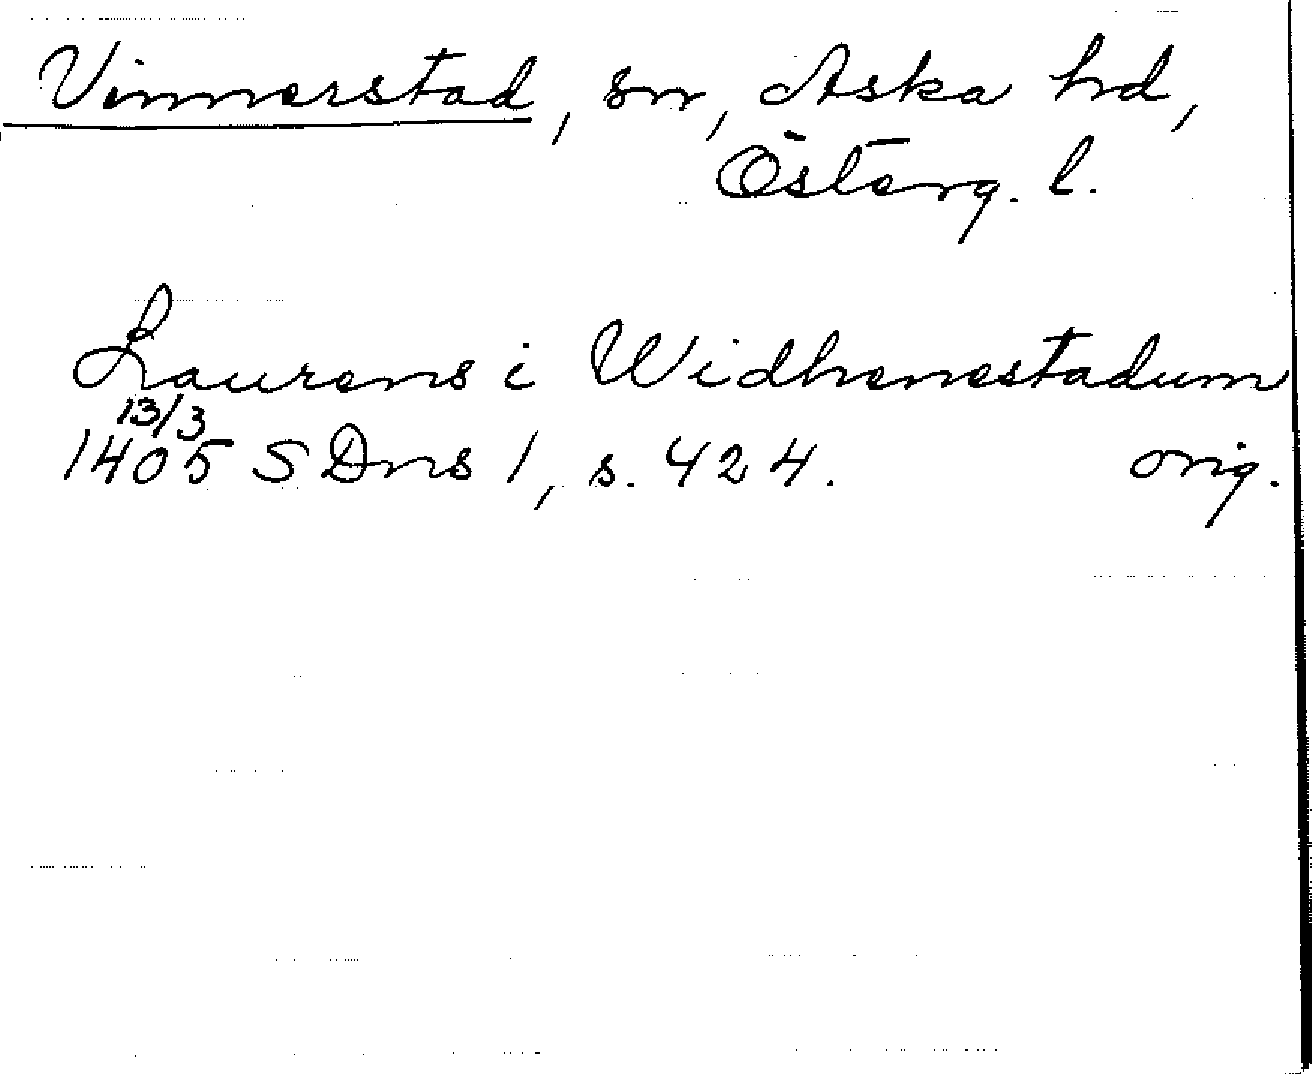 Vinnerstad, sn, Aska hd,
Österg. l.
Laurens i Widhenestadum
13/3
1405 SDns 1, s. 424. orig.